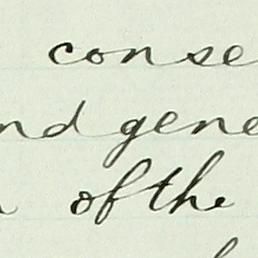 conse
nd gene
of the